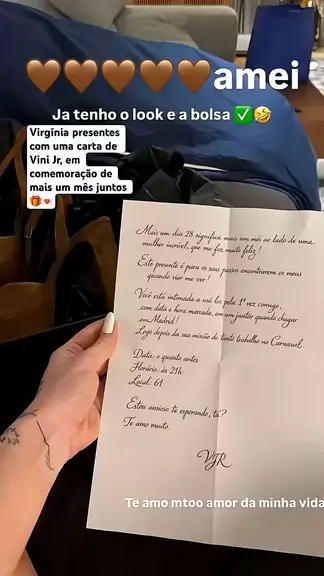 🤎🤎🤎🤎🤎amei
Ja tenho o look e a bolsa ✅🤣
Virgínia presentes
com uma carta de
Vini Jr, em
comemoração de
mais um mês juntos
🎁💌
Mais um dia 28 significa mais um mês ao lado de uma
mulher incrível, que me faz muito feliz!
Este presente é para os seus passos encontrarem os meus
quando vier me ver!
Você está intimada a usá los pela 1ª vez comigo,
com data e hora marcada, em um jantar quando chegar
em Madrid!
Logo depois da sua missão de tanto trabalho no Carnaval.
Data: o quanto antes
Horário: às 21h
Local: 61
Estou ansioso te esperando, tá?
Te amo muito,
VJR
Te amo mtoo amor da minha vida